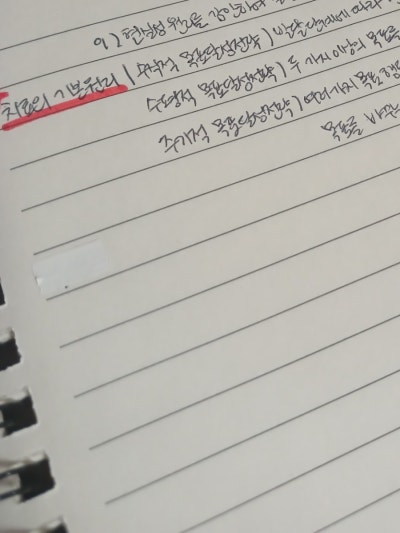 9) 현실성 원리를 강인하여
치료의 기본원리 | 수직적 목표달성전략 | 발달단계에 따라
수평적 목표달성전략 | 두 가지 이상의 목표를
주기적 목표달성전략 | 여러가지 목표
목표를 바꾸는